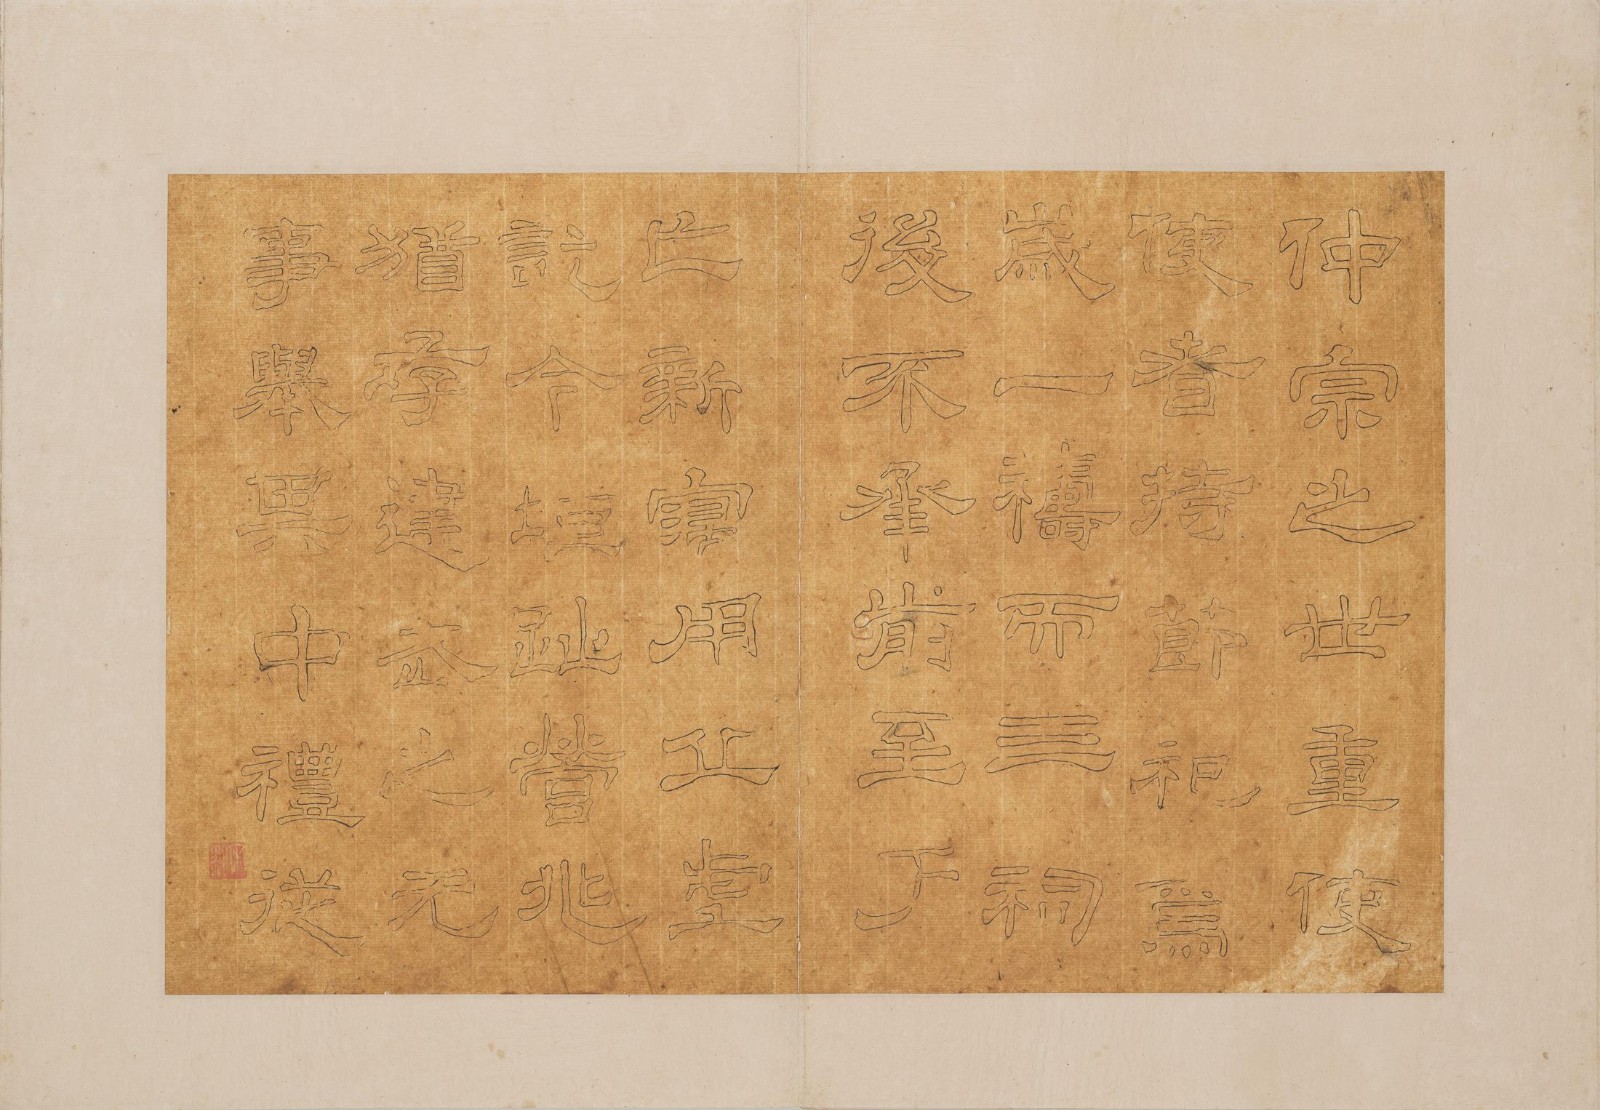 仲宗之世重使
使者持節祀焉
歲一禱而三祠
後不承前至于
亡新寖用丘虛
訖今垣趾營兆
猶存建武之元
事舉其中禮從